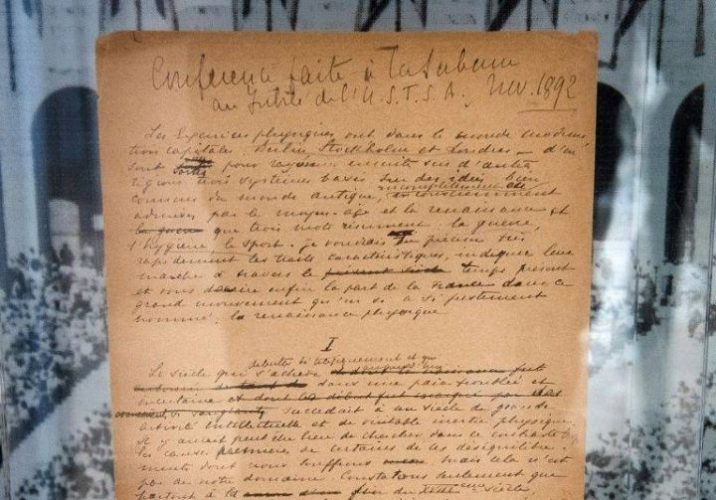 Conférence faite à la Sorbonne
au Jubilé de l'U.S.F.S.A. Nov. 1892
Les Exercices physiques ont dans le monde moderne
trois capitales : Berlin Stockholm et Londres - d'où
sont sortis pour rayonner ensuite sur d'autres
régions trois systèmes basés sur des idées bien
connues du monde antique,
admises par le moyen-age et la renaissance et
que trois mots résument : la guerre,
l'hygiène, le sport. Je voudrais en préciser très
rapidement les traits caractéristiques, indiquer leur
marche à travers le présent siècle temps présent
et vous dire enfin la part de la France dans ce
grand mouvement qu'on a si justement
nommé : la renaissance physique.
I
Le siècle qui s'achève
dans une paix
et dont les début fut marqué par
succédait à un siècle de grande
activité intellectuelle et de véritable inertie physique.
Il y aurait peut être lieu de chercher dans ce contraste
les causes premières de certains de ces déséquilibre-
ments dont nous souffrons mais cela n'est
pas de notre domaine. Constatons seulement que
partout à la fin du siècle